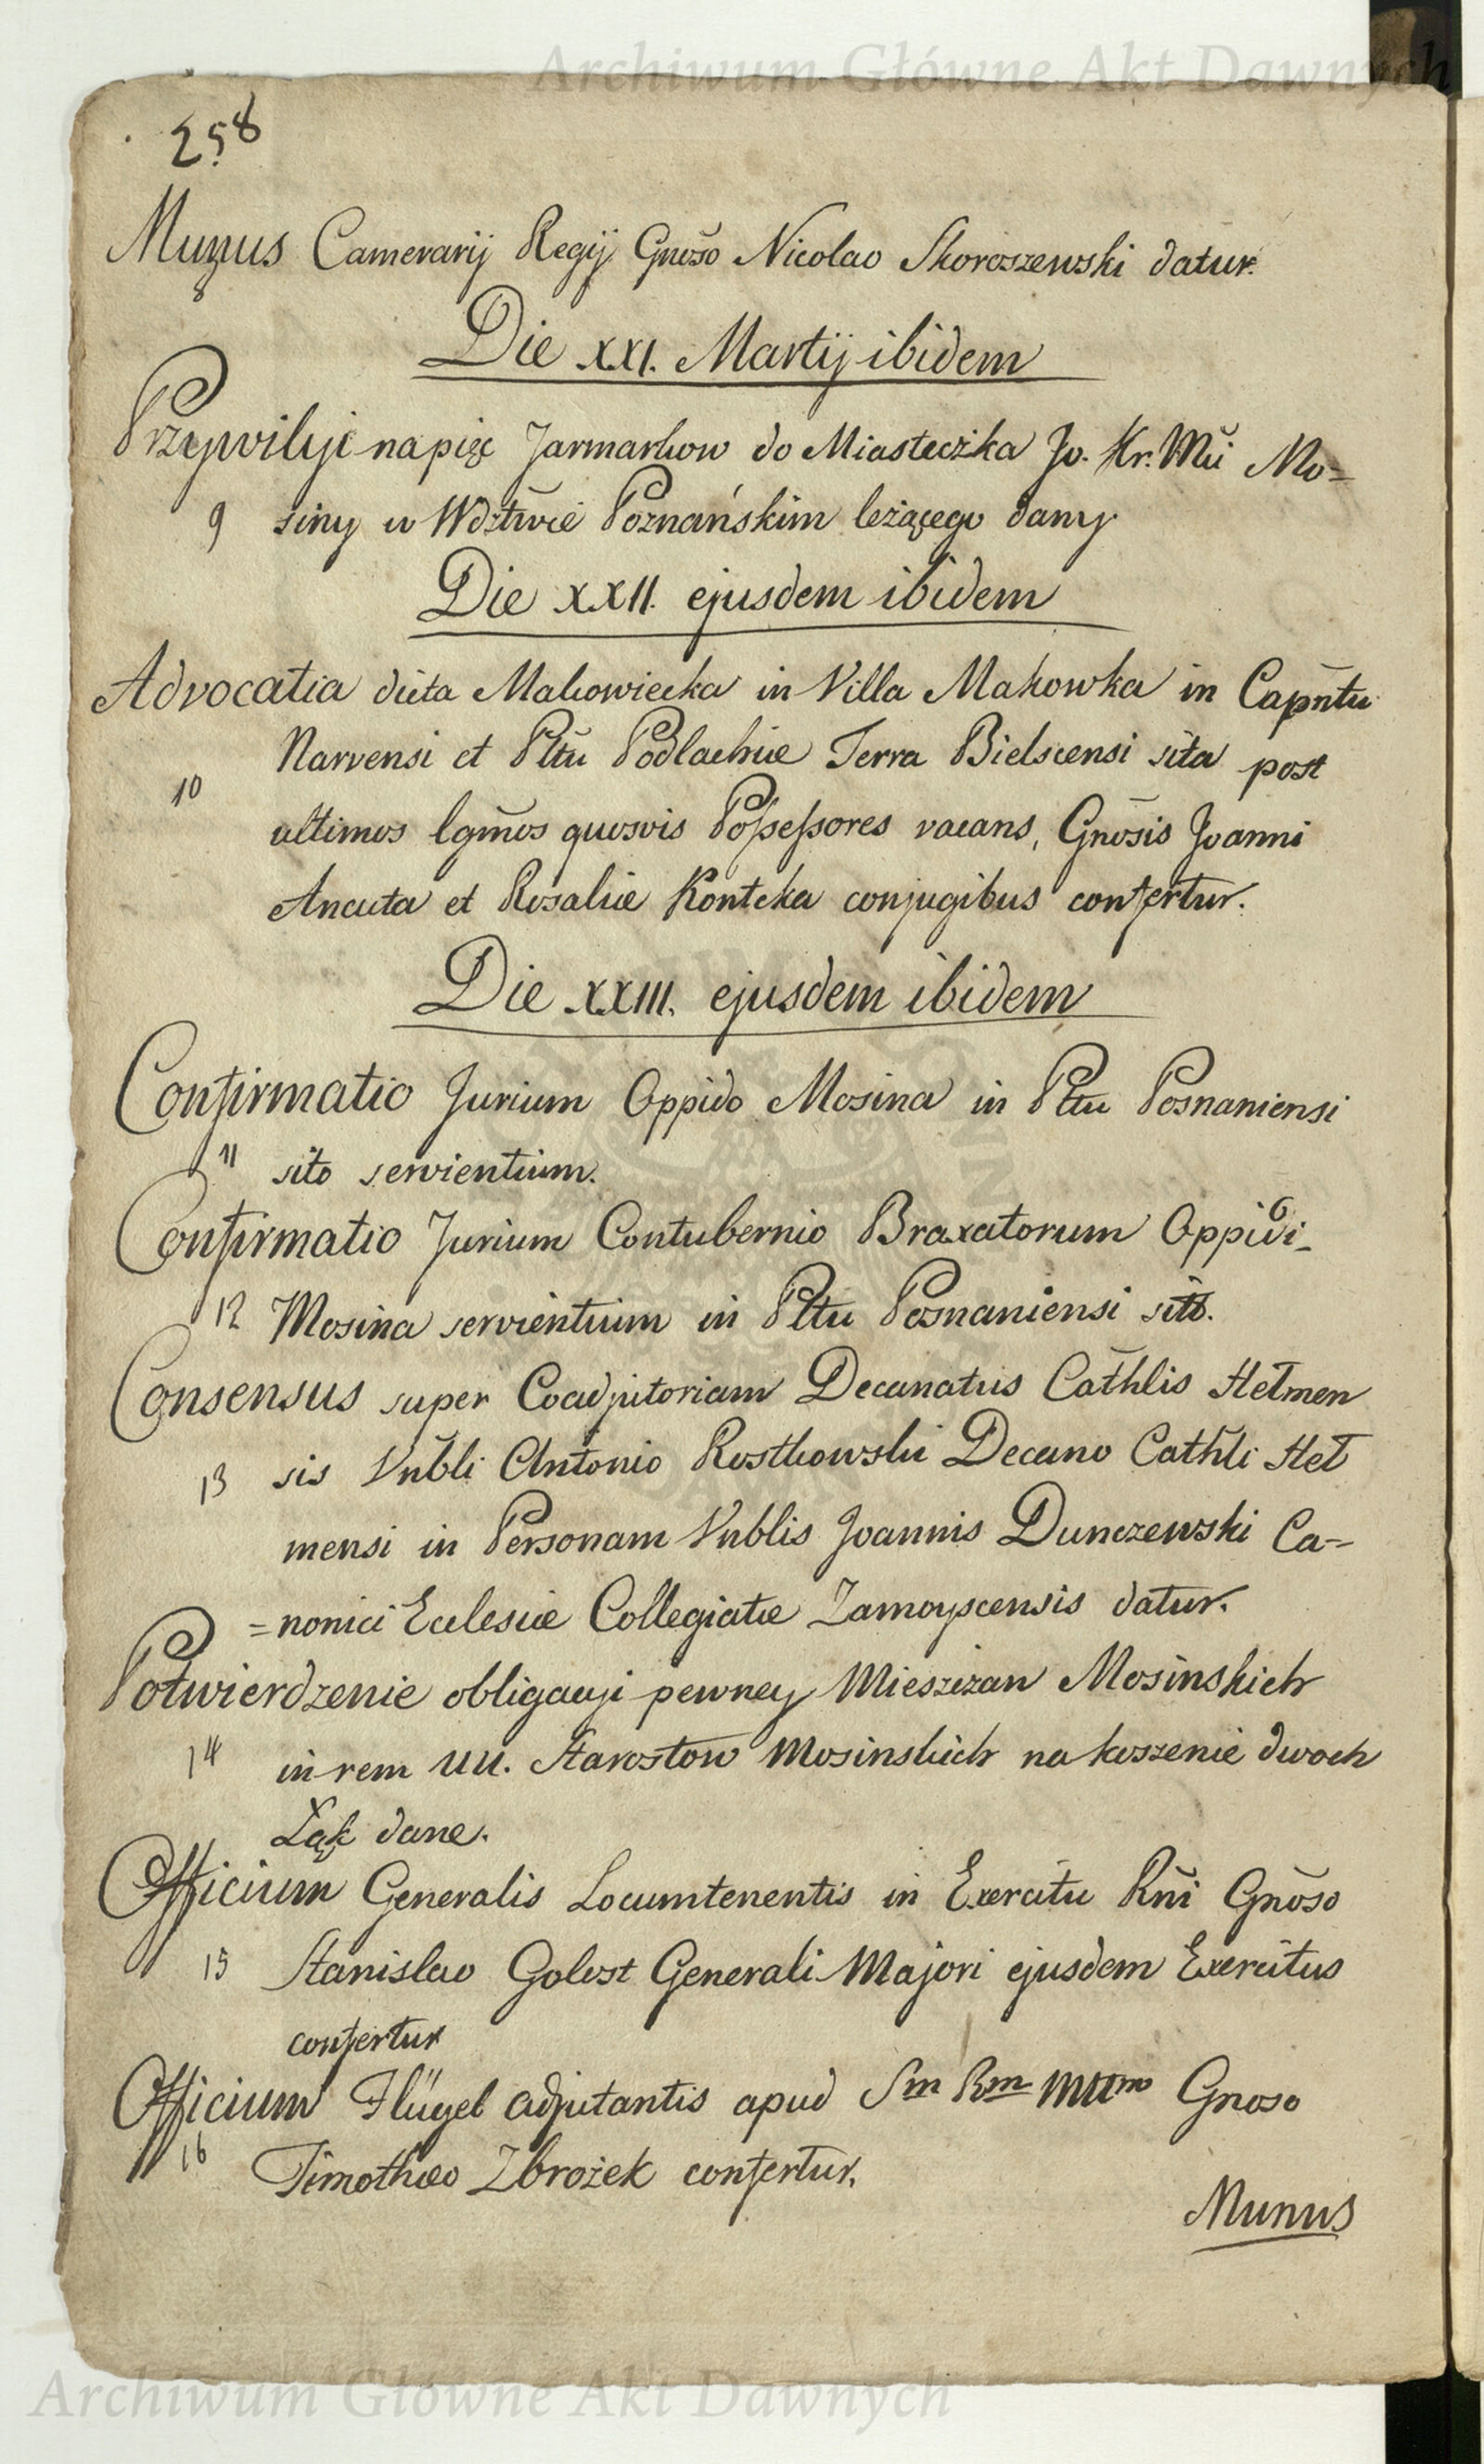 Archiwum Główne Akt Dawnych
258
Munus Camerarij Regij Gnoso Nicolao Skoroszewski datur.
8
Die XXI. Martij ibidem
Przywilije na pięć Jarmarkow do Miasteczka Jo. Kr. Mci Mo=
9 siny w Wdztwie Poznańskim leżącego dany
Die XXII. ejusdem ibidem
Advocatia dicta Makowiecka in Villa Makowka in Capntu
Narvensi et Pltu Podlachiæ Terra Bielscensi sita post
10
ultimos lgmos quosvis Possessores vacans, Gnosis Joanni
Ancuta et Rosaliæ Kontcka conjugibus confertur.
Die XXIII. ejusdem ibidem
Confirmatio Jurium Oppido Mosina in Pltu Posnaniensi
11 sito servientium.
Confirmatio Jurium Contubernio Braxatorum Oppidi
12 Mosina servientium in Pltu Posnaniensi sito.
Consensus super Coadjutoriam Decanatus Cathlis Hełmen
13 sis Vnbli Antonio Rostkowski Decano Cathli Heł
mensi in Personam Vnblis Joannis Dunczewski Ca=
=nonici Ecclesiæ Collegiatæ Zamoyscensis datur.
Potwierdzenie obligacyi pewney Mieszczan Mosinskich
14 in rem UU. Starostow Mosinskich na koszenie dwoch
Łąk dane.
Officium Generalis Locumtenentis in Exercitu Rni Gnoso
15 Stanislao Golcz Generali Majori ejusdem Exercitus
confertur
Officium Flügel Adjutantis apud Sm Rm Mttm Gnoso
16 Timothæo Zbrożek confertur.
Munus
Archiwum Główne Akt Dawnych